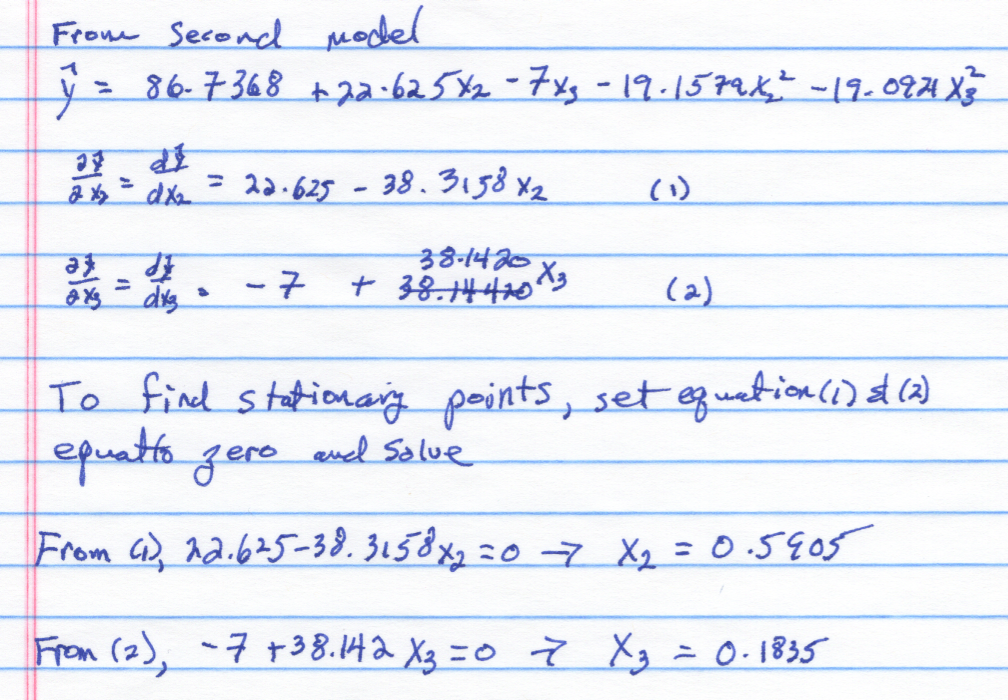 From second model
ŷ = 86.7368 + 22.625x₂ - 7x₃ - 19.1579x₂² - 19.0921x₃²
∂ŷ/∂x₂ = dŷ/dx₂ = 22.625 - 38.3158x₂ (1)
∂ŷ/∂x₃ = dŷ/dx₃ = -7 + 38.1420x₃ (2)
To find stationary points, set equation (1) & (2)
equal to zero and solve
From (1), 22.625-38.3158x₂=0 → x₂ = 0.5905
From (2), -7+38.142x₃=0 → x₃ = 0.1835